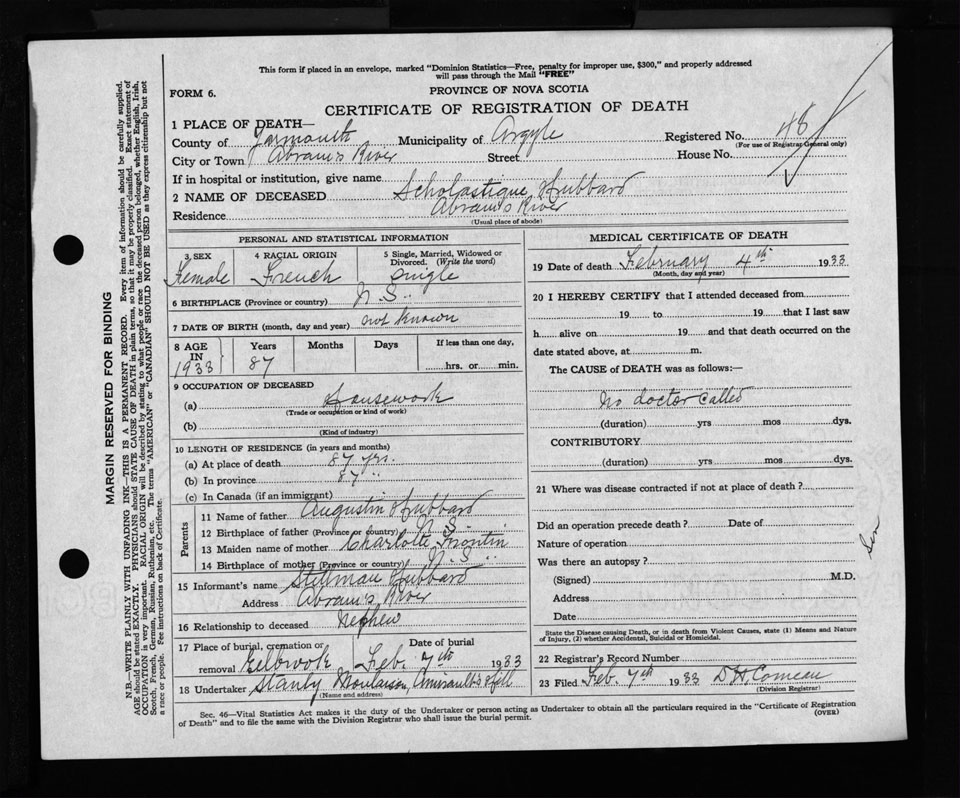 This form if placed in an envelope, marked "Dominion Statistics—Free, penalty for improper use, $300," and properly addressed
will pass through the Mail "FREE"
FORM 6.
PROVINCE OF NOVA SCOTIA
CERTIFICATE OF REGISTRATION OF DEATH
1 PLACE OF DEATH—
County of Yarmouth Municipality of Argyle Registered No. 48
(For use of Registrar General only)
City or Town Abram's River Street House No.
If in hospital or institution, give name
2 NAME OF DECEASED Scholastique Hubbard
Residence Abram's River
(Usual place of abode)
PERSONAL AND STATISTICAL INFORMATION
3 SEX 4 RACIAL ORIGIN 5 Single, Married, Widowed or
Divorced. (Write the word)
Female French Single
6 BIRTHPLACE (Province or country) N.S.
7 DATE OF BIRTH (month, day and year) not known
8 AGE Years Months Days If less than one day,
IN
1933 87 hrs. or min.
9 OCCUPATION OF DECEASED
(a) Housework
(Trade or occupation or kind of work)
(b)
(Kind of industry)
10 LENGTH OF RESIDENCE (in years and months)
(a) At place of death 87 yrs.
(b) In province 87 "
(c) In Canada (if an immigrant)
Parents
11 Name of father Augustin Hubbard
12 Birthplace of father (Province or country) N.S.
13 Maiden name of mother Charlotte Frontin
14 Birthplace of mother (Province or country) N.S.
15 Informant's name Stillman Hubbard
Address Abram's River
16 Relationship to deceased Nephew
17 Place of burial, cremation or Date of burial
removal Eelbrook Feb. 7th 1933
18 Undertaker Stanly Moulaison, Amirault's Hill
(Name and address)
MEDICAL CERTIFICATE OF DEATH
19 Date of death February 4th 1933
(Month, day and year)
20 I HEREBY CERTIFY that I attended deceased from
19 to 19 that I last saw
h alive on 19 and that death occurred on the
date stated above, at m.
The CAUSE of DEATH was as follows:—
No doctor called
(duration) yrs mos dys.
CONTRIBUTORY
(duration) yrs mos dys.
21 Where was disease contracted if not at place of death?
Did an operation precede death? Date of
Nature of operation
Was there an autopsy?
(Signed) M.D.
Address
Date
State the Disease causing Death, or in death from Violent Causes, state (1) Means and Nature
of Injury, (2) whether Accidental, Suicidal or Homicidal.
22 Registrar's Record Number
23 Filed Feb. 7th 1933 D H Comeau
(Division Registrar)
Sec. 46—Vital Statistics Act makes it the duty of the Undertaker or person acting as Undertaker to obtain all the particulars required in the "Certificate of Registration
of Death" and to file the same with the Division Registrar who shall issue the burial permit.
(OVER)
MARGIN RESERVED FOR BINDING
N.B.—WRITE PLAINLY WITH UNFADING INK—THIS IS A PERMANENT RECORD. Every item of information should be carefully supplied.
AGE should be stated EXACTLY. PHYSICIANS should STATE CAUSE OF DEATH in plain terms, so that it may be properly classified. Exact statement of
OCCUPATION is very important. RACIAL ORIGIN will be described by stating to what people or race the deceased person belonged, whether English, Irish,
Scotch, French, German, Russian, Ruthenian, etc. The terms "AMERICAN" or "CANADIAN" SHOULD NOT BE USED as they express citizenship but not
a race or people. Fee instructions on back of Certificate.